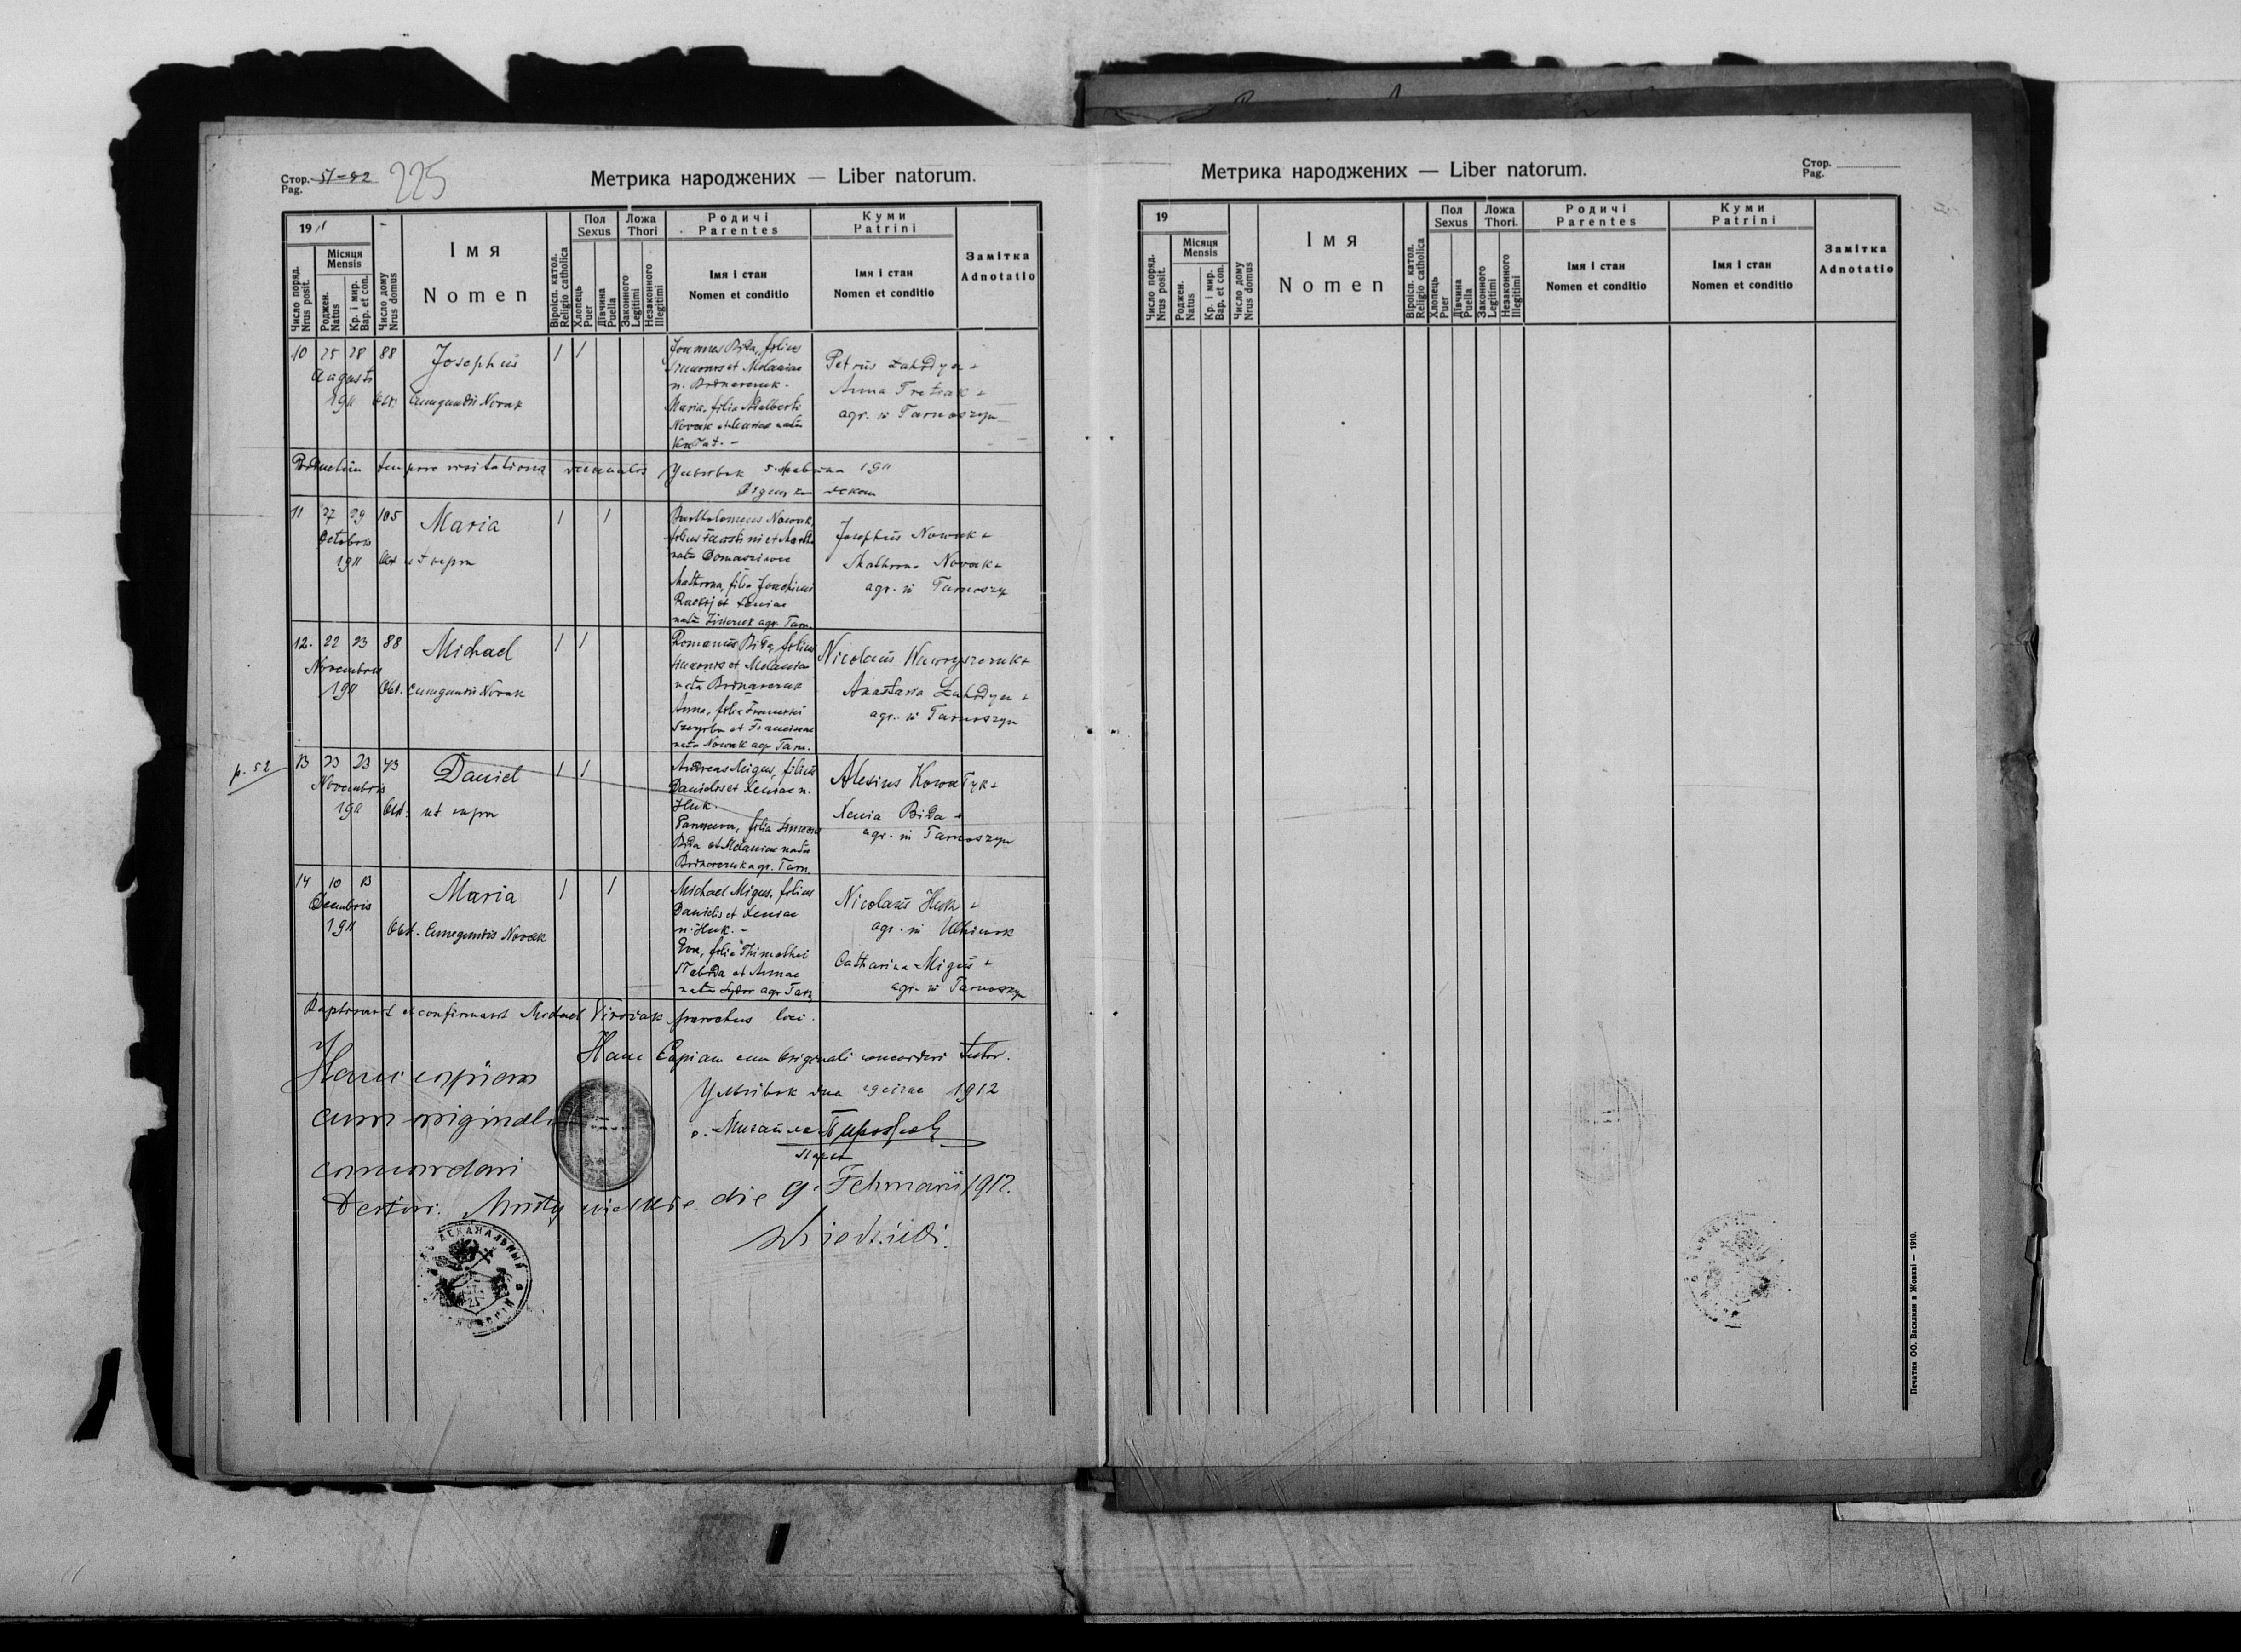 Стор. 51-52
Pag.
225
Метрика народжених — Liber natorum.
1911
Число поряд.
Nrus posit.
Місяця
Mensis
Роджен.
Natus
Кр. і мир.
Bap. et con.
Число дому
Nrus domus
Імя
Nomen
Віроісп. катол.
Religio catholica
Пол
Sexus
Хлопець
Puer
Дівчина
Puella
Ложа
Thori
Законного
Legitimi
Незаконного
Illegitimi
Родичі
Parentes
Імя і стан
Nomen et conditio
Куми
Patrini
Імя і стан
Nomen et conditio
Замітка
Adnotatio
10 25 28 88 Josephus 1 1
Augusti
1911 Obst. Cunegundis Novak
Joannes Bida, filius
Simeonis et Melaniae
n. Bodnarczuk.
Maria, filia Adalberti
Novak et Xeniae nata
Petrus Zahodyn +
Anna Tretiak +
agr. in Tarnoszyn
Productum tempore visitationis decanalis Угнівок 5. 1911
декан
11 27 29 105 Maria 1 1
Octobris
1911 Obst ut supra
Bartholomeus Nowak,
filius Faustini et
nata
Mathrona, filia Joachimi
et Xeniae
nata agr. Tarn.
Josephus Nowak +
Mathrona Novak +
agr. in Tarnoszyn
12. 22 23 88 Michael 1 1
Novembris
1911 Obst. Cunegundis Novak
Romanus Bida, filius
Simeonis et Melaniae
nata Bodnarczuk
Anna, filia Francisci
Szczyrba et Franciscae
nata Nowak agr. Tarn.
Nicolaus Wawryszczuk +
Anastasia Zahodyn +
agr. in Tarnoszyn
p. 52
13 23 23 43 Daniel 1 1
Novembris
1911 Obst. ut supra
Andreas Migus, filius
Danielis et Xeniae n.
Huk.
filia Simeonis
Bida et Melaniae nata
Bodnarczuk agr. Tarn.
Alexius Kowalyk +
Xenia Bida +
agr. in Tarnoszyn
14 10 13 Maria 1 1
Decembris
1911 Obst. Cunegundis Novak
Michael Migus, filius
Danielis et Xeniae
n. Huk. -
Eva, filia Thimothei
et Annae
nata agr Tarn
Nicolaus Huk +
agr. in Ulhiwok
Catharina Migus +
agr. in Tarnoszyn
Baptisavit et confirmavit Michael parochus loci.
Hanc Copiam cum Originali concordari testor.
дня 1912
о. Михайло
парох
Hanc copiam
cum originali
concordari
testor. die 9. Februarii 1912.
Метрика народжених — Liber natorum.
Стор.
Pag.
19
Число поряд.
Nrus posit.
Місяця
Mensis
Роджен.
Natus
Кр. і мир.
Bap. et con.
Число дому
Nrus domus
Імя
Nomen
Віроісп. катол.
Religio catholica
Пол
Sexus
Хлопець
Puer
Дівчина
Puella
Ложа
Thori.
Законного
Legitimi
Незаконного
Illegitimi
Родичі
Parentes
Імя і стан
Nomen et conditio
Куми
Patrini
Імя і стан
Nomen et conditio
Замітка
Adnotatio
Печатня ОО. Василиян в Жовкві — 1910.